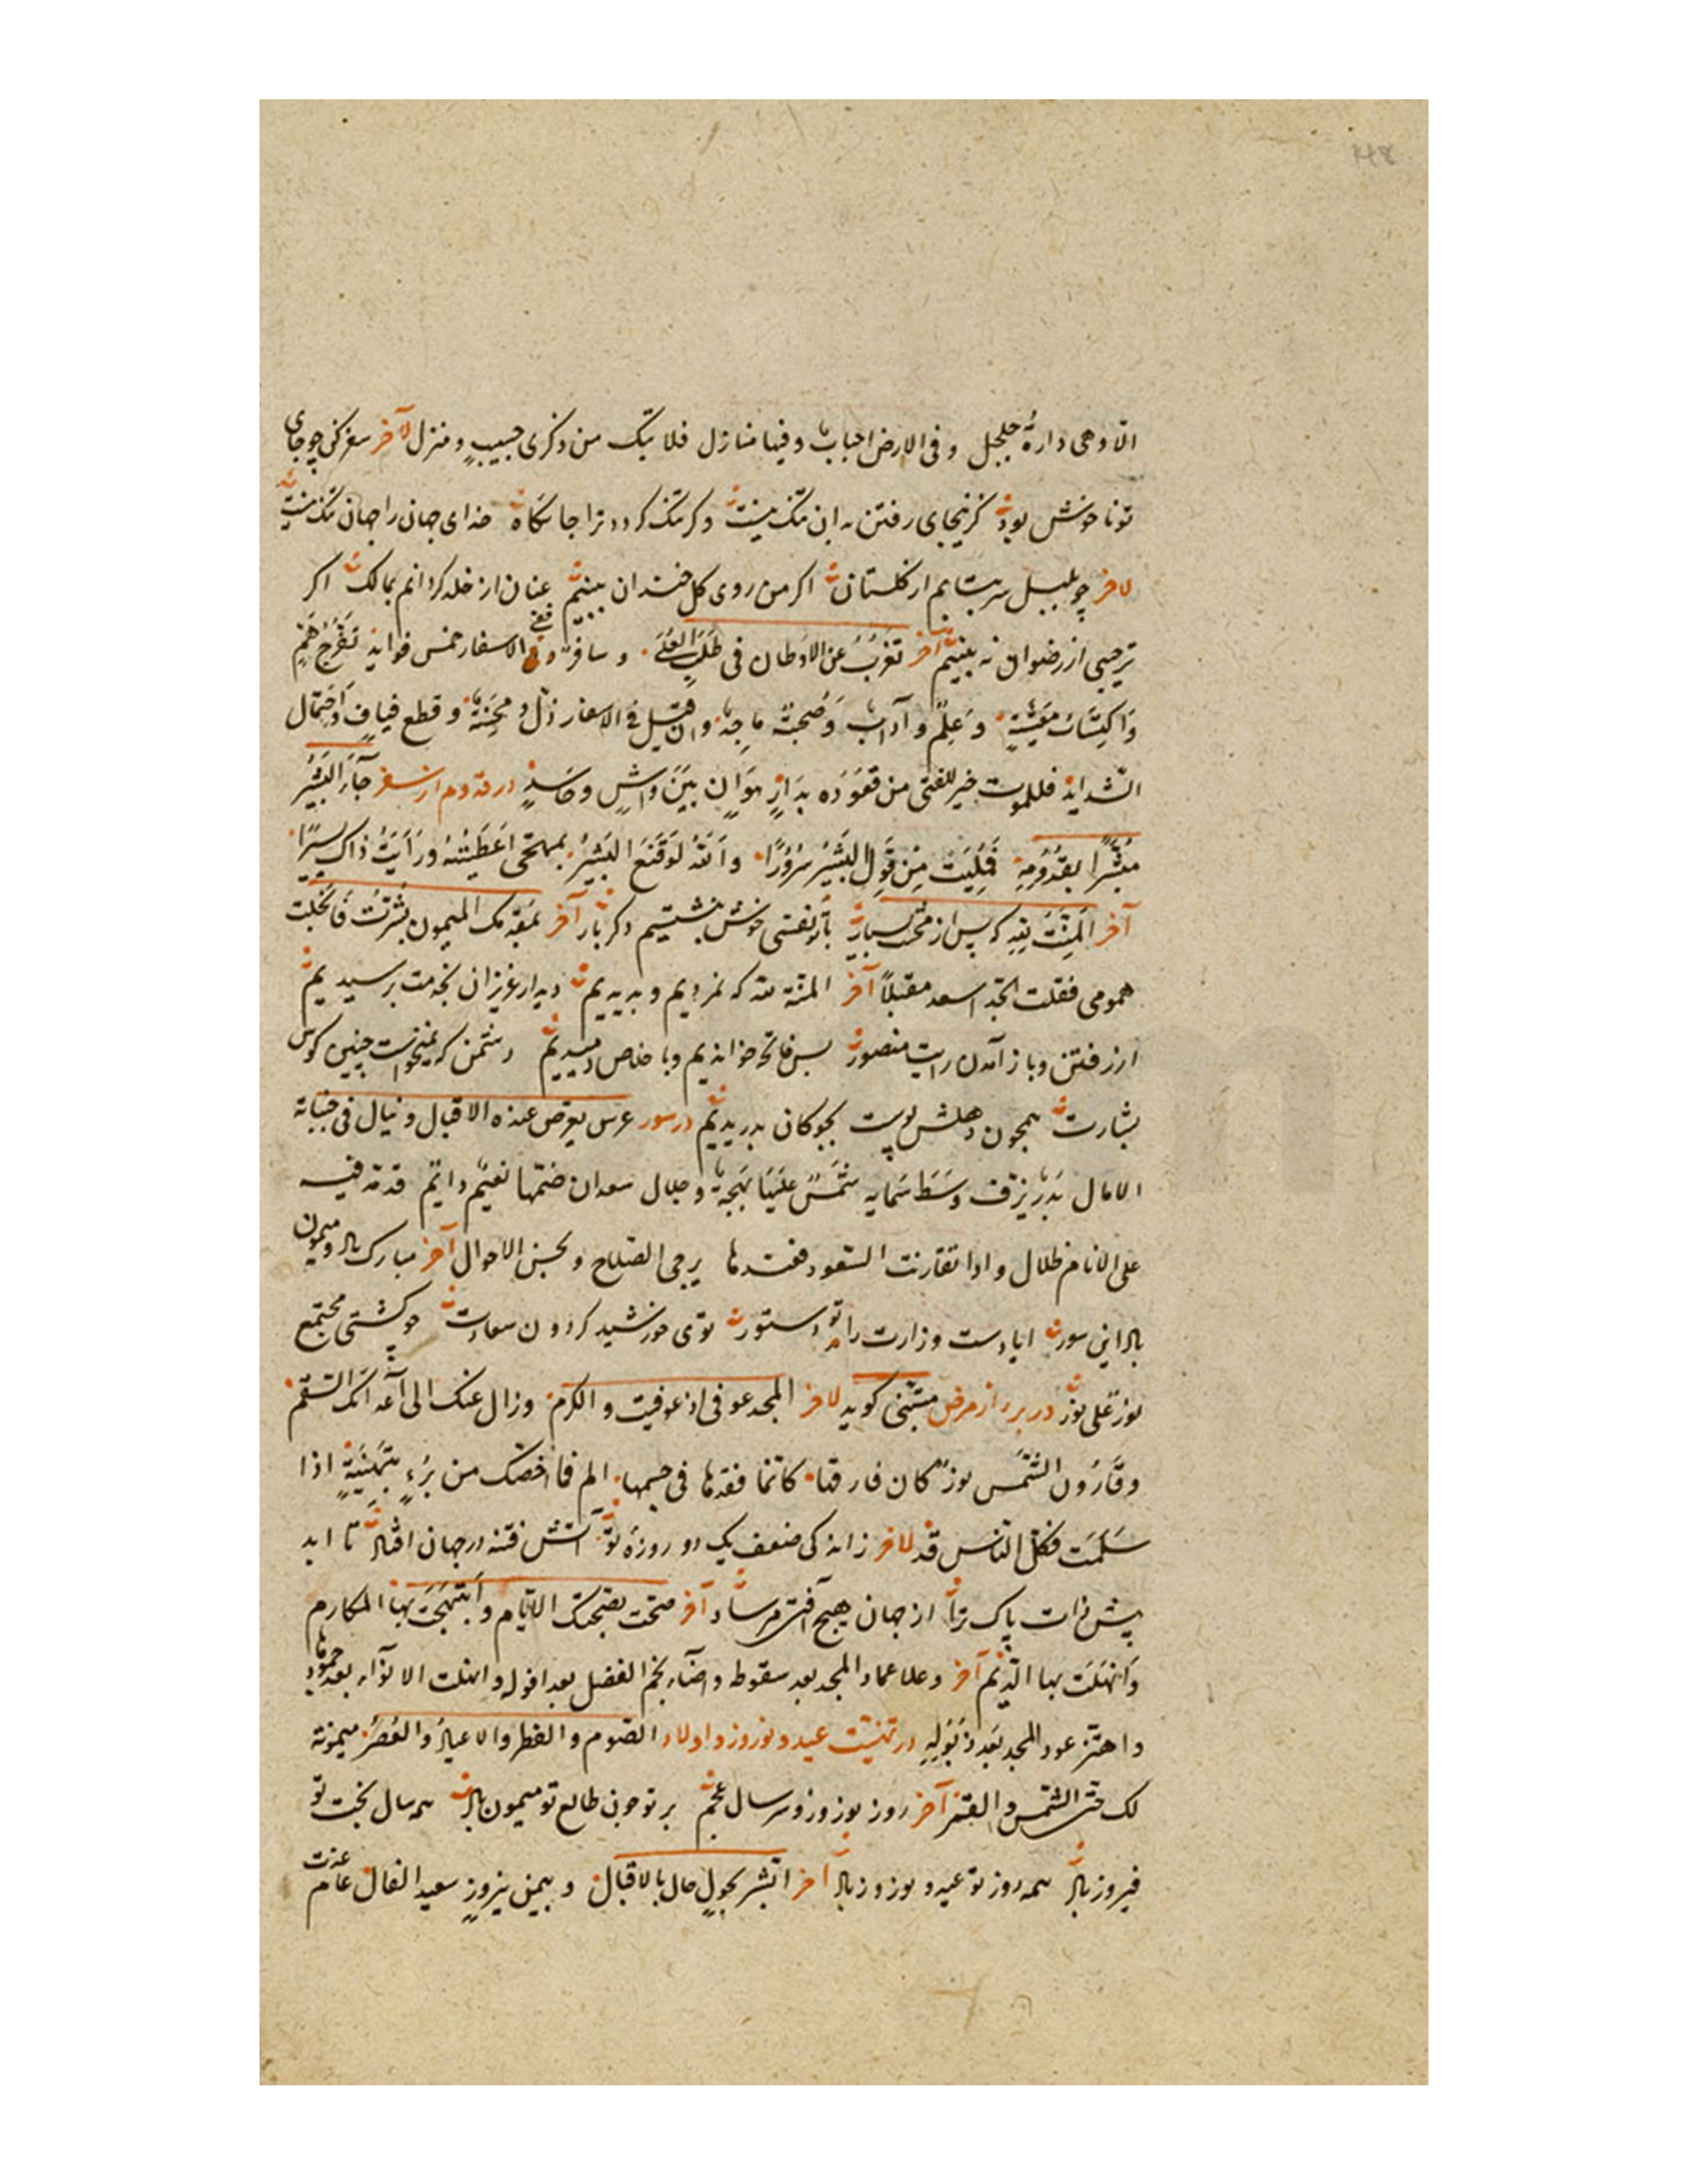 الا وهی دارة جلجل وفی الارض احباب وفیها منازل فلا تبک من ذکری حبیب ومنزل لآخر سفر کن چو جای
تو ناخوش بود کزینجای رفتن بدان ننک نیست وکر تنک کردد ترا جایکاه خدای جهانرا جهان تنک نیست
لاخر چو بلبل سر بتابم از کلستان اکر من روی کل خندان نبینم عنان از خلد کردانم بمالک اکر
ترحیبی از رضوان نه بینم آخر تَغَرَّبْ عن الاوطان فی طَلَبِ العُلَی وسافر ففی الاسفار خمس فواید تَفَرُّجُ هَمٍّ
وَاکتِسَابُ مَعِیْشَةٍ وَعِلْمٌ وآدابٌ وَصُحبَةُ ماجد وان قیل فی الاسفار ذلّ ومحنة وقطع فیافٍ واحتمال
الشداید فللموت خیر للفتی من قُعوده بدارِ هَوَانٍ بَیْنَ وَاشٍ وحَاسِدٍ در قدوم از سفر جآءَ البَشِیرُ
مُبَشِّرًا بِقُدُومِهِ فَمُلِیْتُ مِن قَولِ البَشِیْرِ سُرُوْرًا والله لَو قَنَعَ البَشِیرُ بمهجتی اَعطَیتُهُ ورَأَیتُ ذاک یسیرًا
آخر المِنَّتُ لِلّه که پس از محنت بسیار با تو نفسی خوش بنشستیم دکر بار آخر بمقدمک المیمون بُشِّرتُ فَانْجَلَت
همومی فقلت الجد اسعد مقبلاً آخر المنّة لله که نمردیم وبدیدیم دیدار عزیزان بخدمت برسیدیم
از رفتن وباز آمدن رایت منصور بس فاتحه خواندیم وبا خلاص دمیدیم دشمن که نمیخواست چنین کوس
بشارت همچون دهلش پوست بچوکان بدریدیم در سور عرس یعرض عنده الاقبال وینال فی جنباته
الامال بَدْرٌ یزف وَسَطَ سَمایه شَمْسٌ عَلَیهَا بَهجةٌ وجلال سعدان ضمّها نعیم دایم قد مدّ فیه
علی الانام ظلال واذا تقارنت السّعود فعندها یرجی الصلاح وتحسن الاحوال آخر مبارک باد ومیمون
باد این سور ایا دست وزارت را تو دستور توی خورشید کردون سعادت چو کشتی مجتمع
نورٌ علی نور در برء از مرض متنبّی کوید لاخر المجد عوفی اذ عوفیت والکرم وزال عنک الی اعدآئک السّقم
وقَارُون الشَّمْس نورٌ کان فارقها کانّما فقدها فی جسمها الم فما اخصّک من بُرْءٍ بِتَهْنِیَةٍ اذا
سَلَمْتَ فکلّ النّاس قد لاخر زانه کی ضعف یک دو روزهٔ تو آتش فتنه در جهان افتاد تا ابد
پیش ذات پاک ترا از جهان هیچ آفت مرساد آخر صحّت بصحّتک الایّام وابتهجت بها المکارم
وَانْهَلَّت بها الدّیم آخر وعلا عماد المجد بعد سقوطه واضآء نجم الفضل بعد افوله وانهلت الانوآء بعد جمودها
واهتز عود المجد بَعدَ ذُبُولِهِ در تهنیت عید ونوروز واولاد الصّوم والفطر والاعیادُ والعُصُرُ میمونة
لک حتی الشمس والقمر آخر روز نوروز وسر سال عجم بر تو چون طالع تو میمون باد همه سال بخت تو
فیروز باد همه روز تو عید ونوروز باد آخر ابشر بحَوْلٍ حال بالاقبال وبیمن نیروزٍ سعید الفال عام عزت